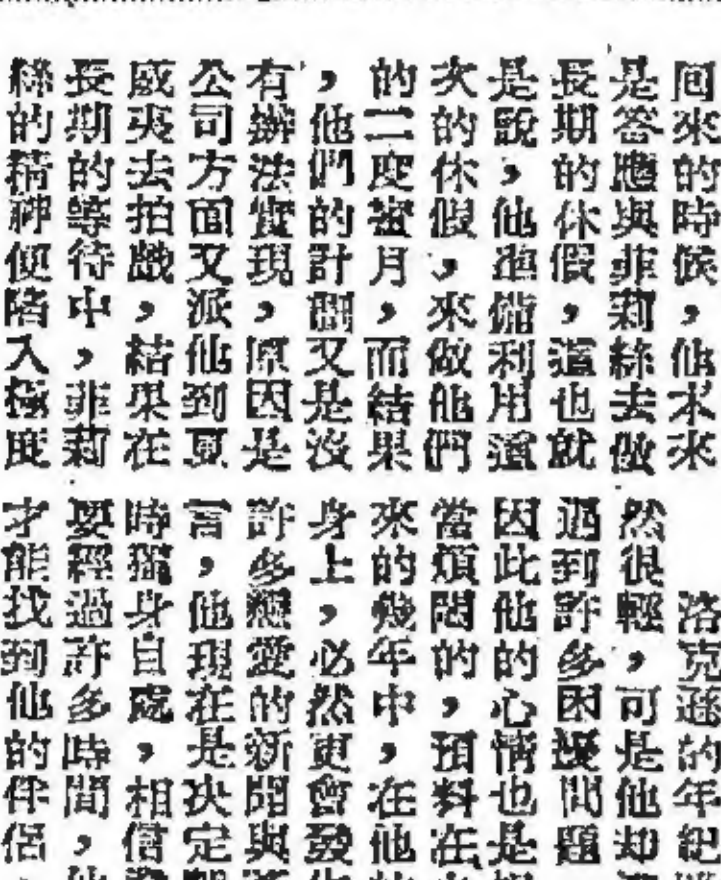 囘來的時候,他本來
是答應與菲莉絲去做
長期的休假,這也就
是說,他準備利用這
次的休假,來做他們
的二度蜜月,而結果
,他們的計劃又是沒
有辦法實現,原因是
公司方面又派他到夏
威夷去拍戲,結果在
長期的等待中,菲莉
絲的精神便陷入極度
洛克遜的年紀
然很輕,可是他却
遇到許多困擾問題
因此他的心情也是
當煩悶的,預料在
來的幾年中,在他
身上,必然更會發
許多戀愛的新聞與
言,他現在是決定
時獨身自處,相信
要經過許多時間,
才能找到他的伴侶